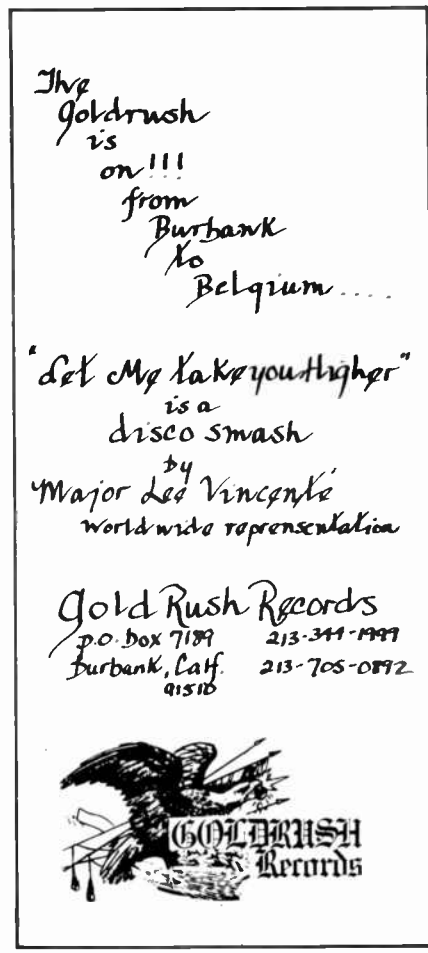 The
goldrush
is
on!!!
from
Burbank
to
Belgium.....
"Let Me take you Higher"
is a
disco smash
by
Major Lee Vincenté
world wide reprensentation
Gold Rush Records
p.o. box 7189 213-344-1999
Burbank, Calf. 213-705-0892
91510
GOLDRUSH
Records